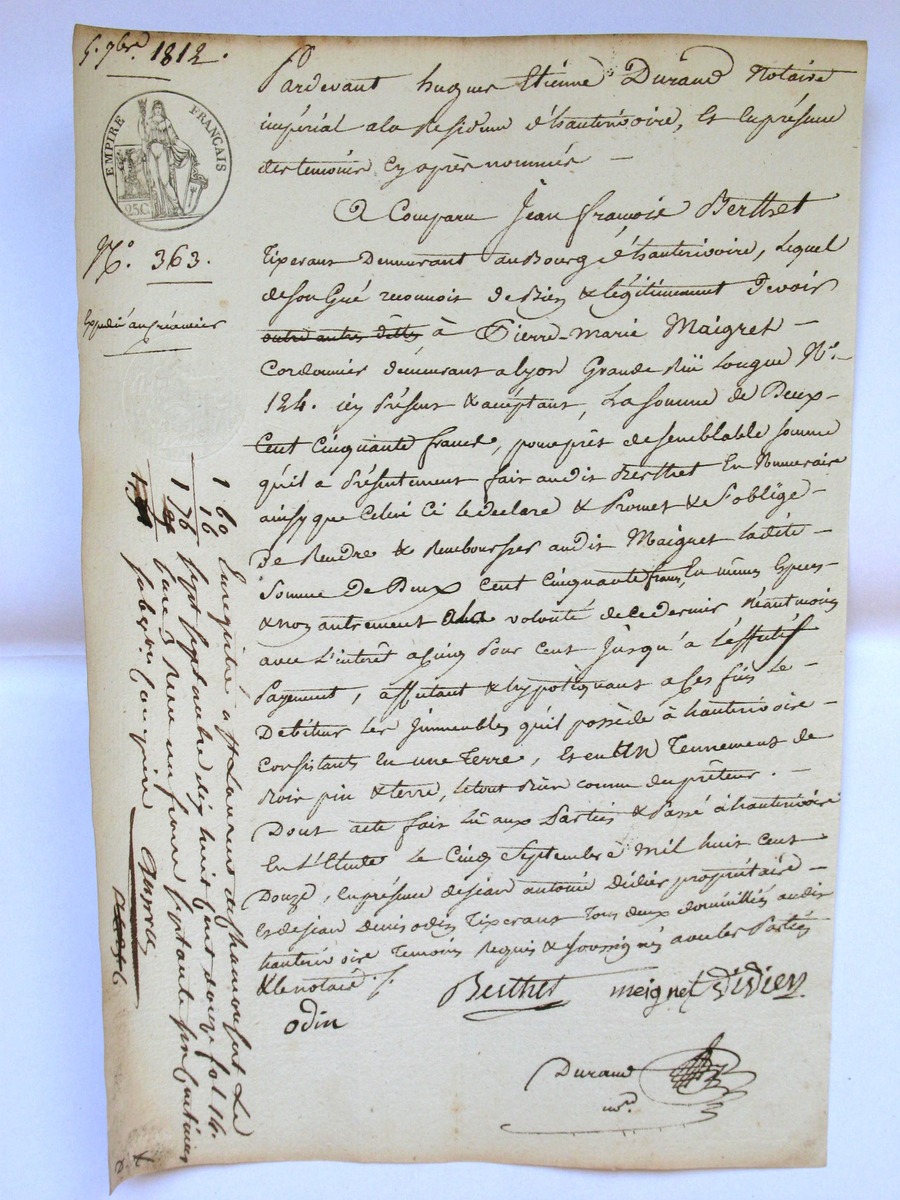 5. 7bre. 1812.
EMPIRE FRANÇAIS
25.C.
N°. 363.
Expedié au créancier
Pardevant hugues Etienne Durand Notaire
impérial a la Residence d'hauterivoire, Et En présence
des temoins Cy après nommés —
A Comparu Jean françois Berthet
Tixerant Demeurant au Bourg d'hauterivoire, Lequel
de son Gré reconnoit de Bien & légitimement Devoir
outre autres dettes à Pierre-marie Maigret —
Cordonnier demeurant a lyon Grande Rüe Longue N°.—
124. icy Présent & acceptant, La somme de Deux-
Cent Cinquante francs, pour prêt de semblable somme
qu'il a Présentement fait audit Berthet En Numeraire
ainsy que Celui Ci le declare & Promet & s'oblige —
De Rendre & Rembourser audit Maigret ladite
Somme de Deux Cent Cinquante francs, En mêmes Especes
& non autrement a la volonté de ce dernier Néantmoins
avec L'intérêt a Cinq Pour Cent Jusqu'à L'éffectif
Payement, affectant & hypotéquant a Ces fins Le —
Debiteur Les Jmmeubles qu'il possède à hauterivoire —
Consistants En une Terre, Et en UN Tennement de
Bois pin & terre, Le tout Bien connu du prêteur. —
Dont acte fait Lu aux Parties & Passé à hauterivoire
En L'Etude Le Cinq Septembre Mil huit Cent
Douze, En présence de jean antoine didier propriétaire —
Et de jean denis odin Tixerant Tous deux domiciliés audit
hauterivoire Temoins Requis & soussignés avec les Parties
& le notaire ./.
Berthet meignet Didier
odin
Durand
nre.
1 60 Enregistré a St Laurent de Chamousset Le
16 sept septembre dix huit Cent douze fol 14.
1 76 Case 3 Reçu un franc septante six Centimes